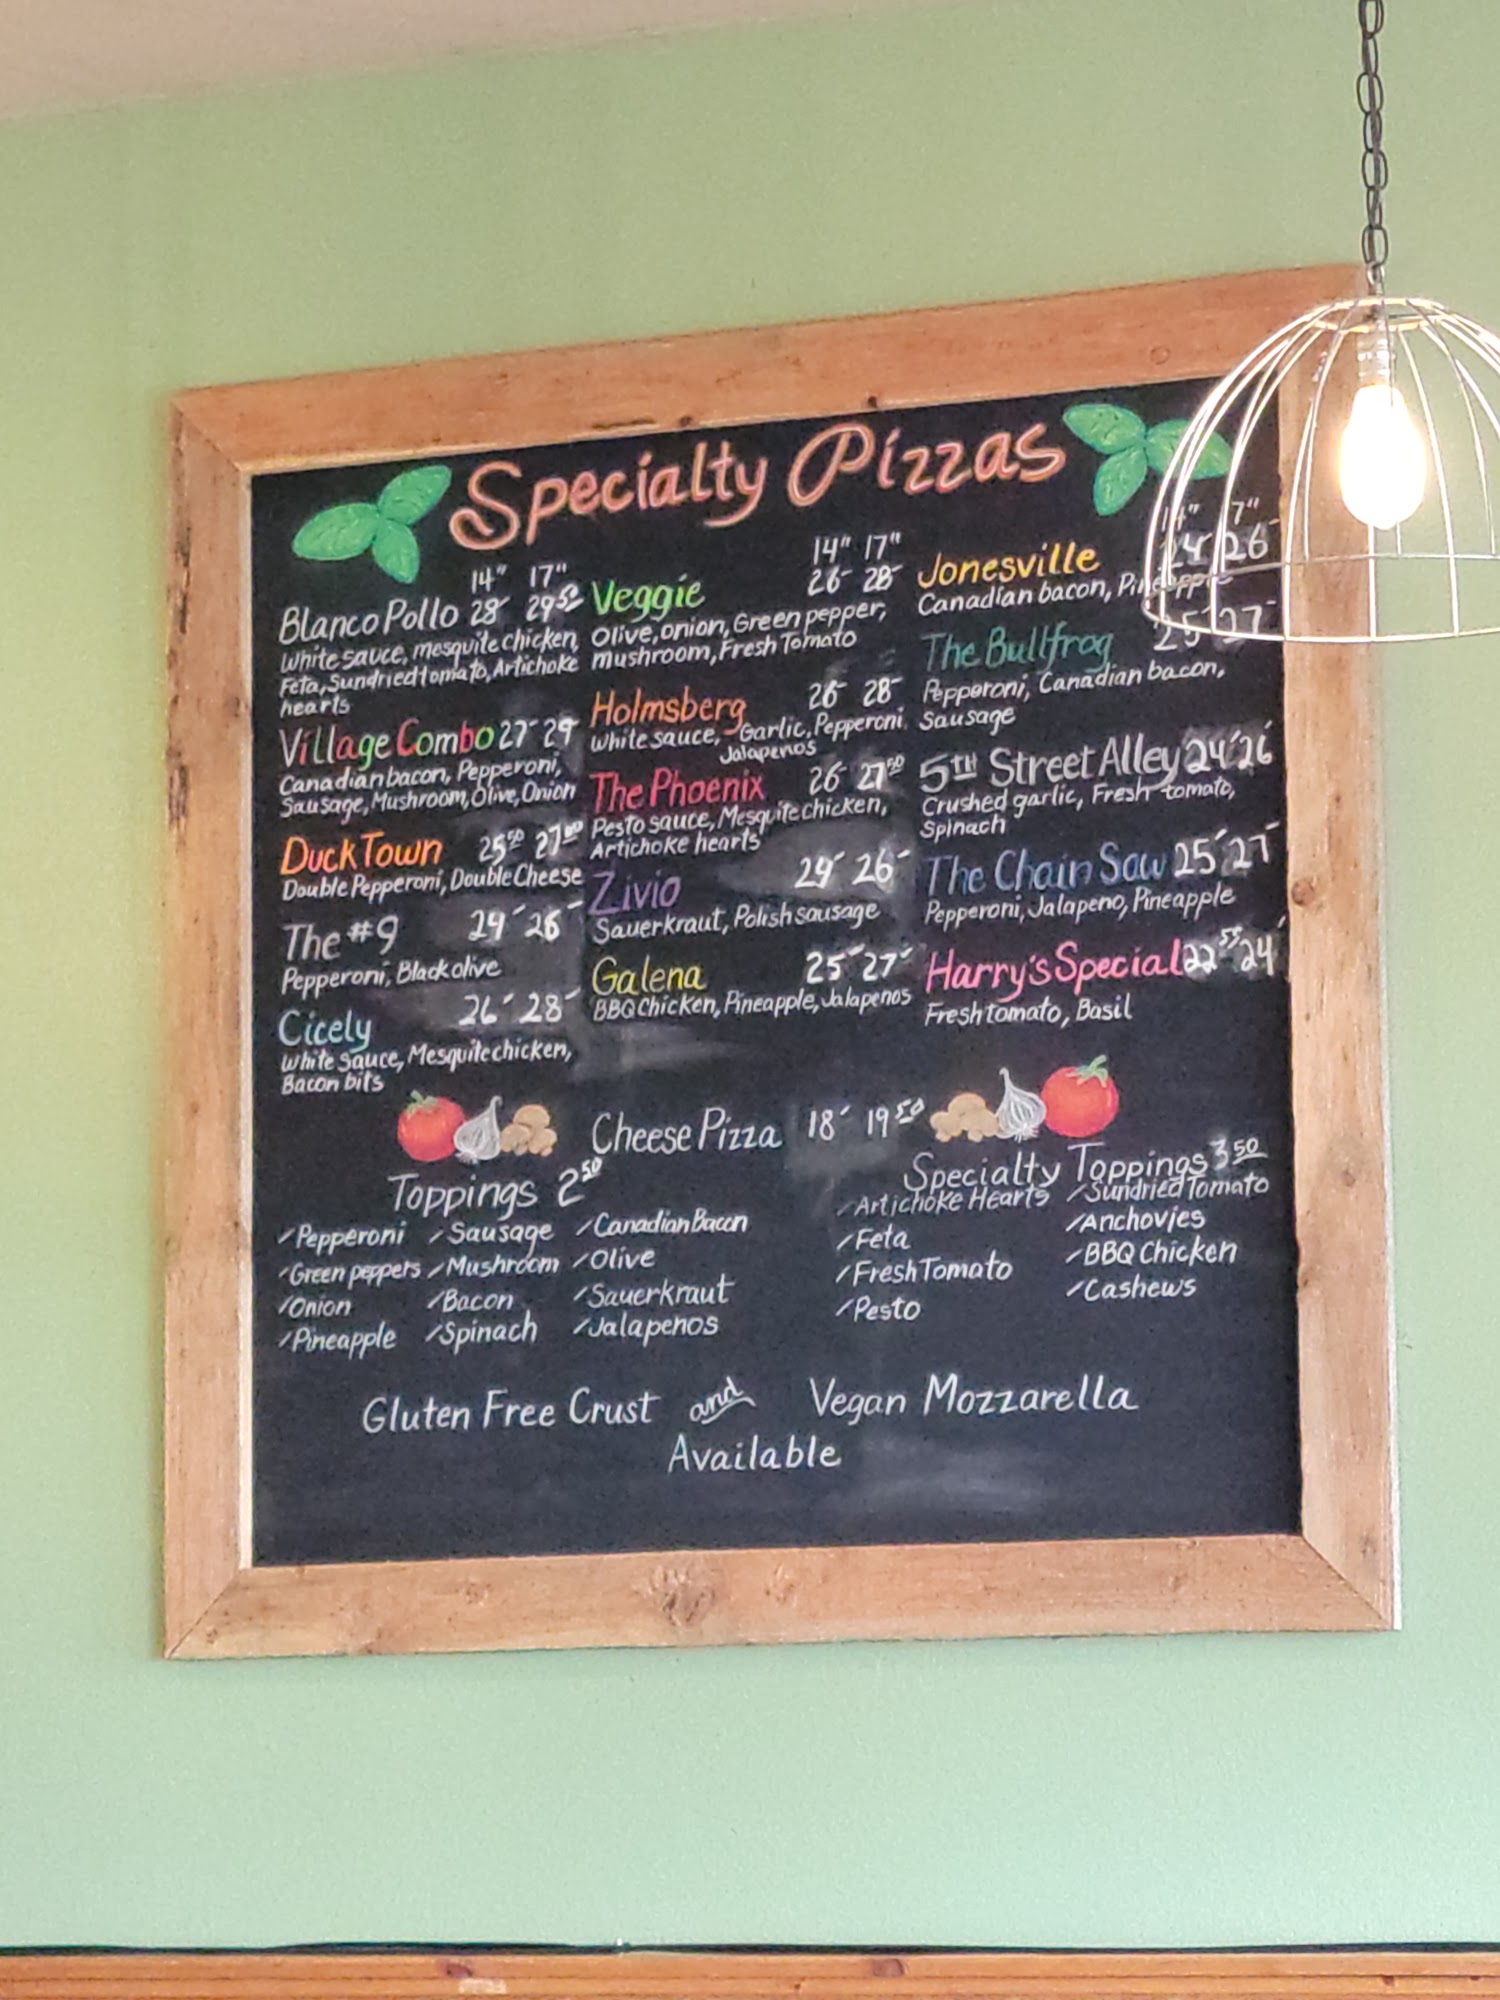 Specialty Pizzas
14" 17"
Blanco Pollo 28- 29.50
White sauce, mesquite chicken,
Feta, Sundried tomato, Artichoke
hearts
Village Combo 27- 29-
Canadian bacon, Pepperoni,
Sausage, Mushroom, Olive, Onion
Duck Town 25.50 27.00
Double Pepperoni, Double Cheese
The #9 24- 26-
Pepperoni, Black olive
Cicely 26- 28-
White Sauce, Mesquite chicken,
Bacon bits
14" 17"
Veggie 26- 28-
Olive, Onion, Green pepper,
mushroom, Fresh Tomato
Holmsberg 26- 28-
White sauce, Garlic, Pepperoni
Jalapenos
The Phoenix 26- 27.50
Pesto sauce, Mesquite chicken,
Artichoke hearts
Zivio 24- 26-
Sauerkraut, Polish sausage
Galena 25- 27-
BBQ Chicken, Pineapple, Jalapenos
14" 17"
Jonesville 24- 26-
Canadian bacon, Pineapple
The Bullfrog 25- 27-
Pepperoni, Canadian bacon,
Sausage
5TH Street Alley 24- 26-
Crushed garlic, Fresh tomato,
Spinach
The Chain Saw 25- 27-
Pepperoni, Jalapeno, Pineapple
Harry's Special 22.55 24-
Fresh tomato, Basil
Cheese Pizza 18- 19.50
Toppings 2.50
Pepperoni Sausage Canadian Bacon
Green peppers Mushroom Olive
Onion Bacon Sauerkraut
Pineapple Spinach Jalapenos
Specialty Toppings 3.50
Artichoke Hearts Sundried Tomato
Feta Anchovies
Fresh Tomato BBQ Chicken
Pesto Cashews
Gluten Free Crust and Vegan Mozzarella
Available